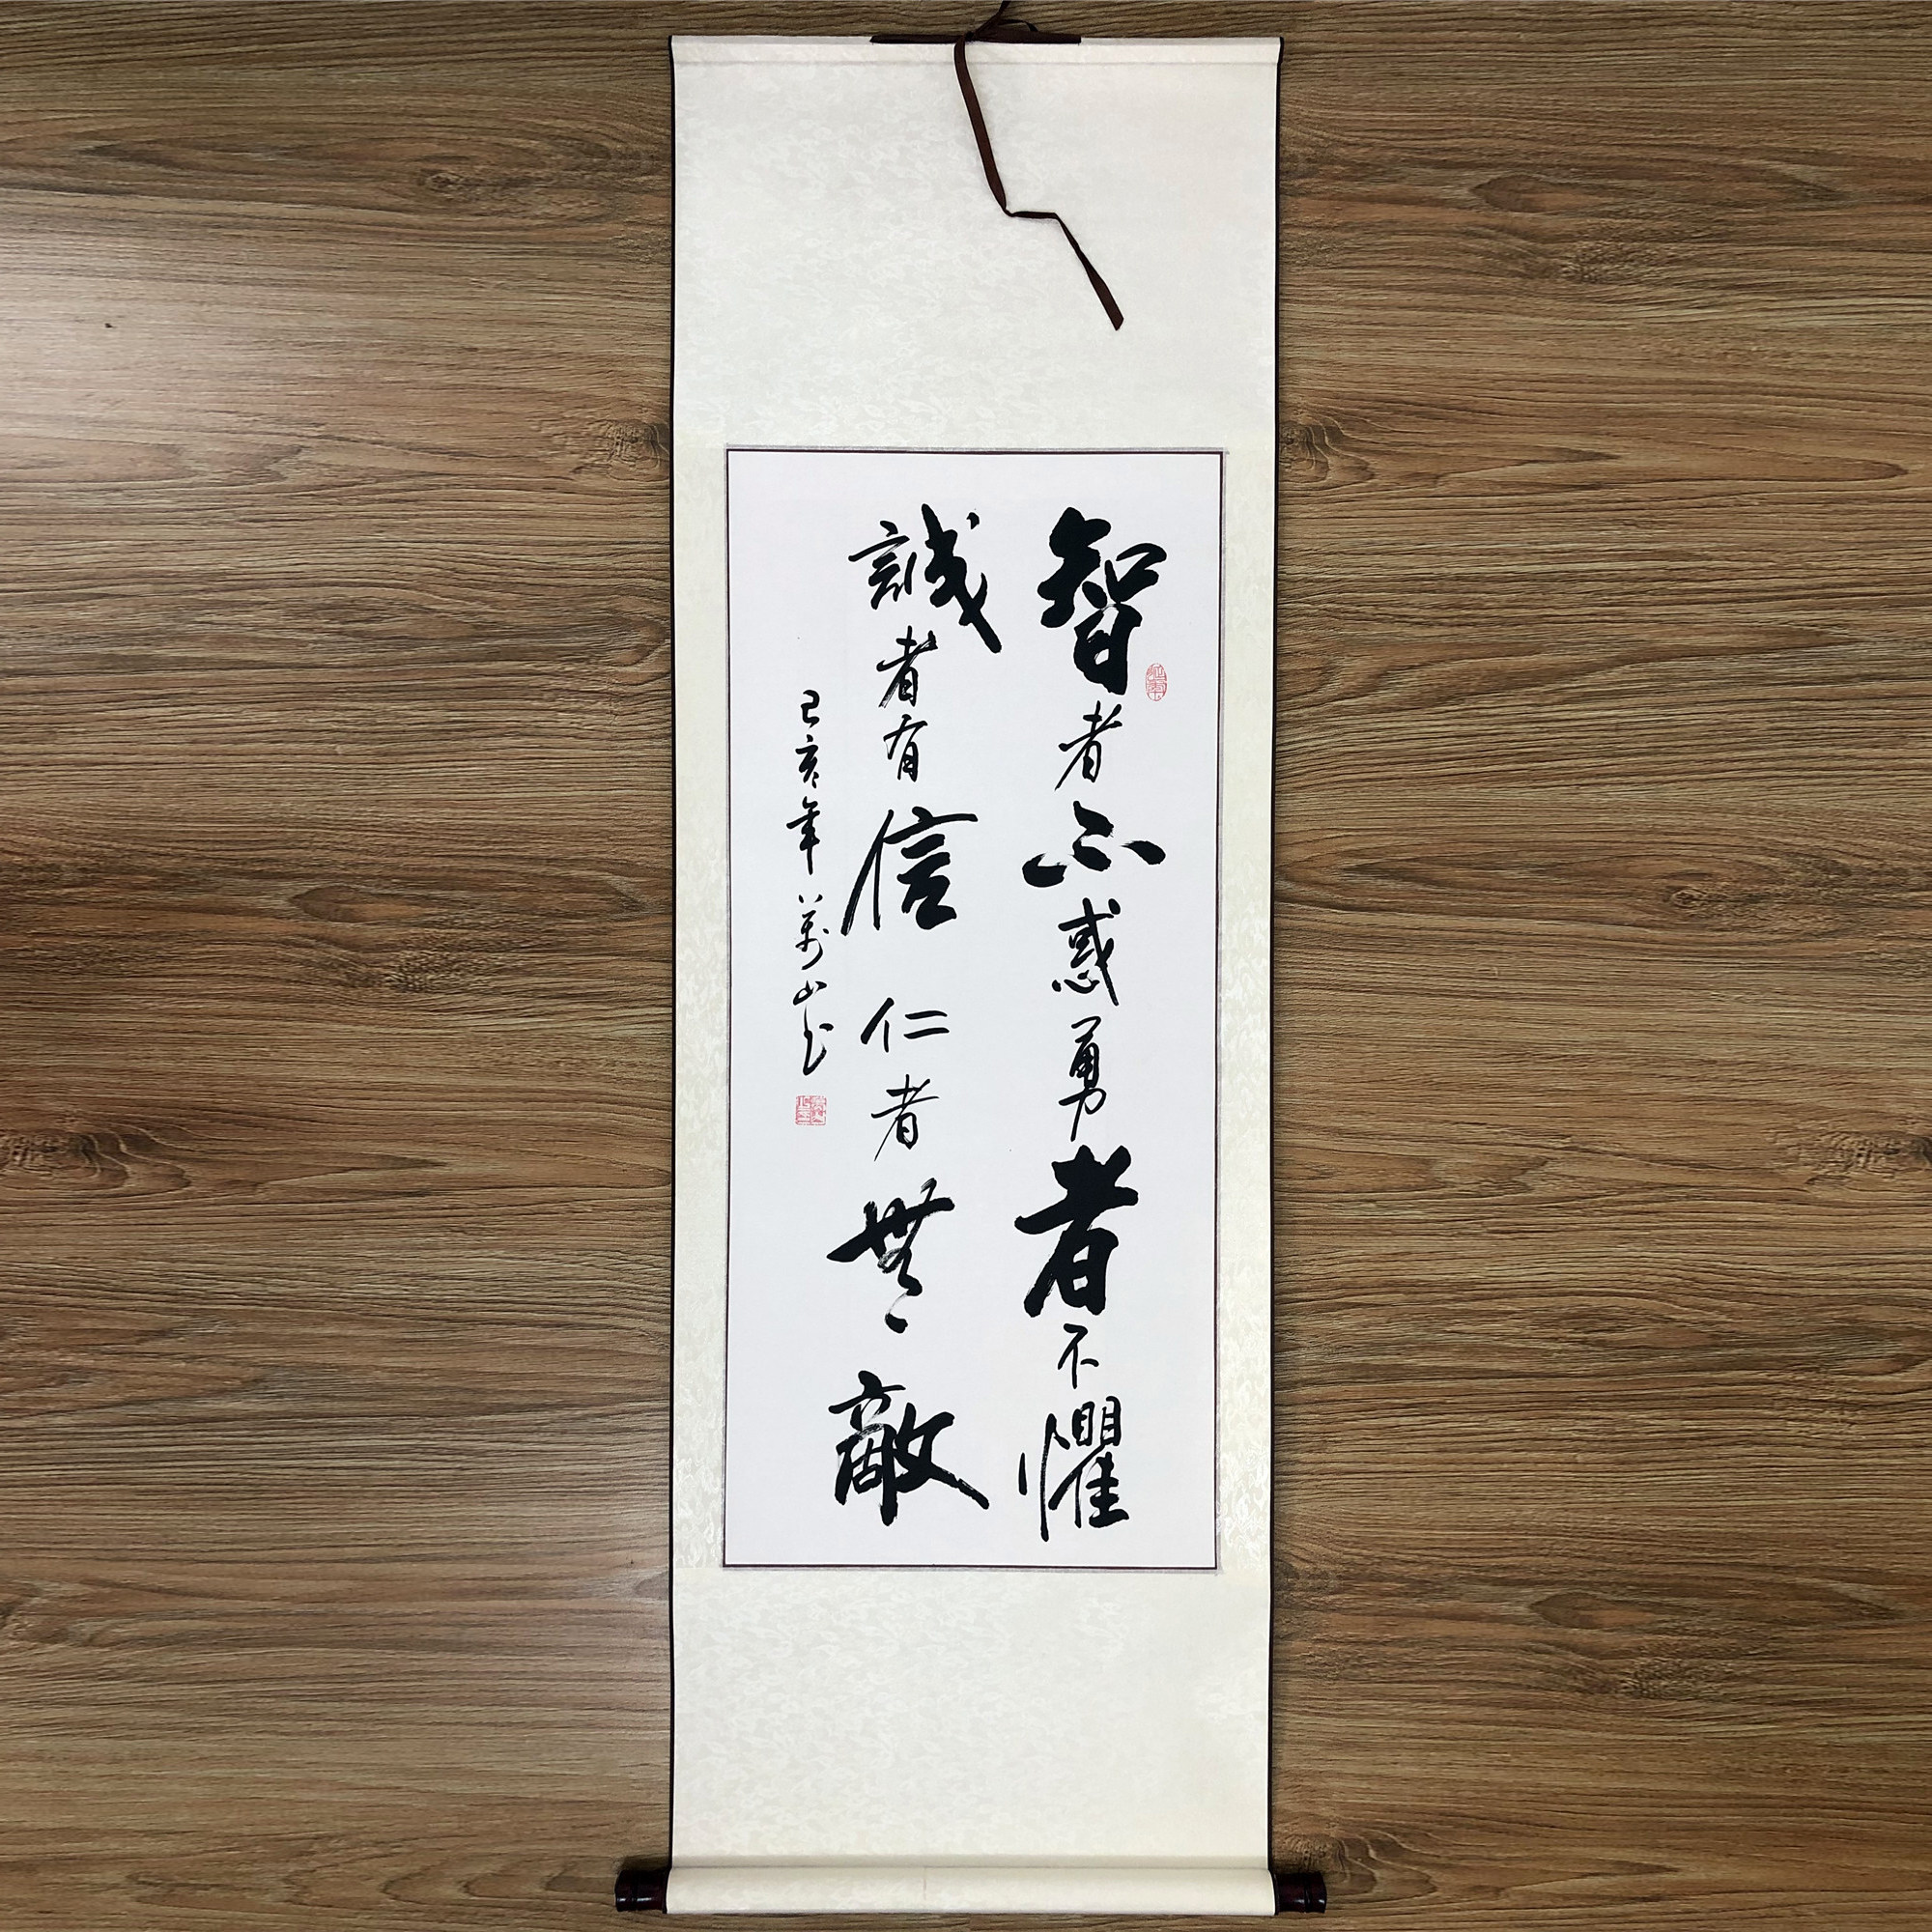 智者不惑勇者不懼
誠者有信仁者無敵
己亥年萬山书